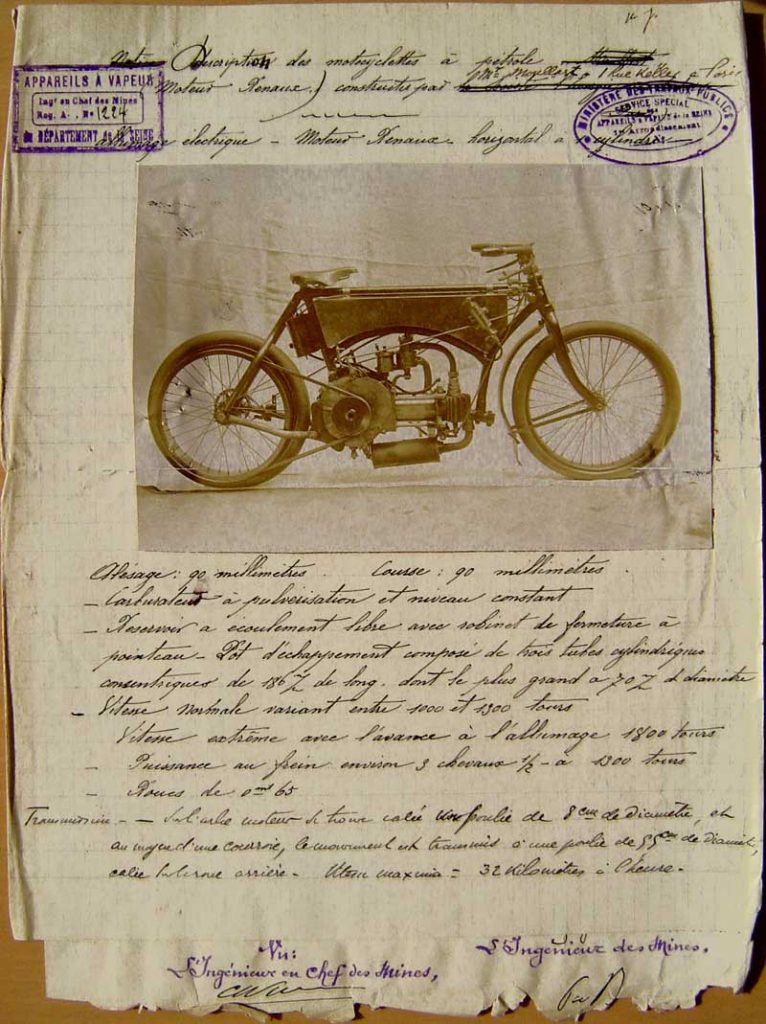 N. 7.
Description des motocyclettes à pétrole
Moteur Renaux) construites par Mr Maillard 1 Rue Keller à Paris
APPAREILS À VAPEUR
Ingr en Chef des Mines
Reg. A. N° 1224
du DÉPARTEMENT de la SEINE
MINISTÈRE DES TRAVAUX PUBLICS
SERVICE SPÉCIAL
DES
APPAREILS A VAPEUR DE LA SEINE
Arrondissement
électrique - Moteur Renaux horizontal à cylindre
Alésage : 90 millimètres . Course : 90 millimètres .
- Carburateur à pulvérisation et niveau constant
- Reservoir a écoulement libre avec robinet de fermeture à
pointeau - Pot d'échappement composé de trois tubes cylindriques
consentriques de 186 de long. dont le plus grand a 70 d diamètre
- Vitesse normale variant entre 1000 et 1300 tours
Vitesse extrême avec l'avance à l'allumage 1800 tours
- Puissance au frein environ 3 chevaux 1/2 - à 1300 tours
- Roues de 0m 65
Transmission - - Sur l'arbre moteur se trouve calée une poulie de 8cm de diamètre, et
au moyen d'une courroie, le mouvement est transmis à une poulie de 55cm de diamèt,
calée sur la roue arrière - Vitesse maxima = 32 Kilomètres à l'heure -
Vu:
L'Ingénieur en Chef des Mines,
L'Ingénieur des Mines,